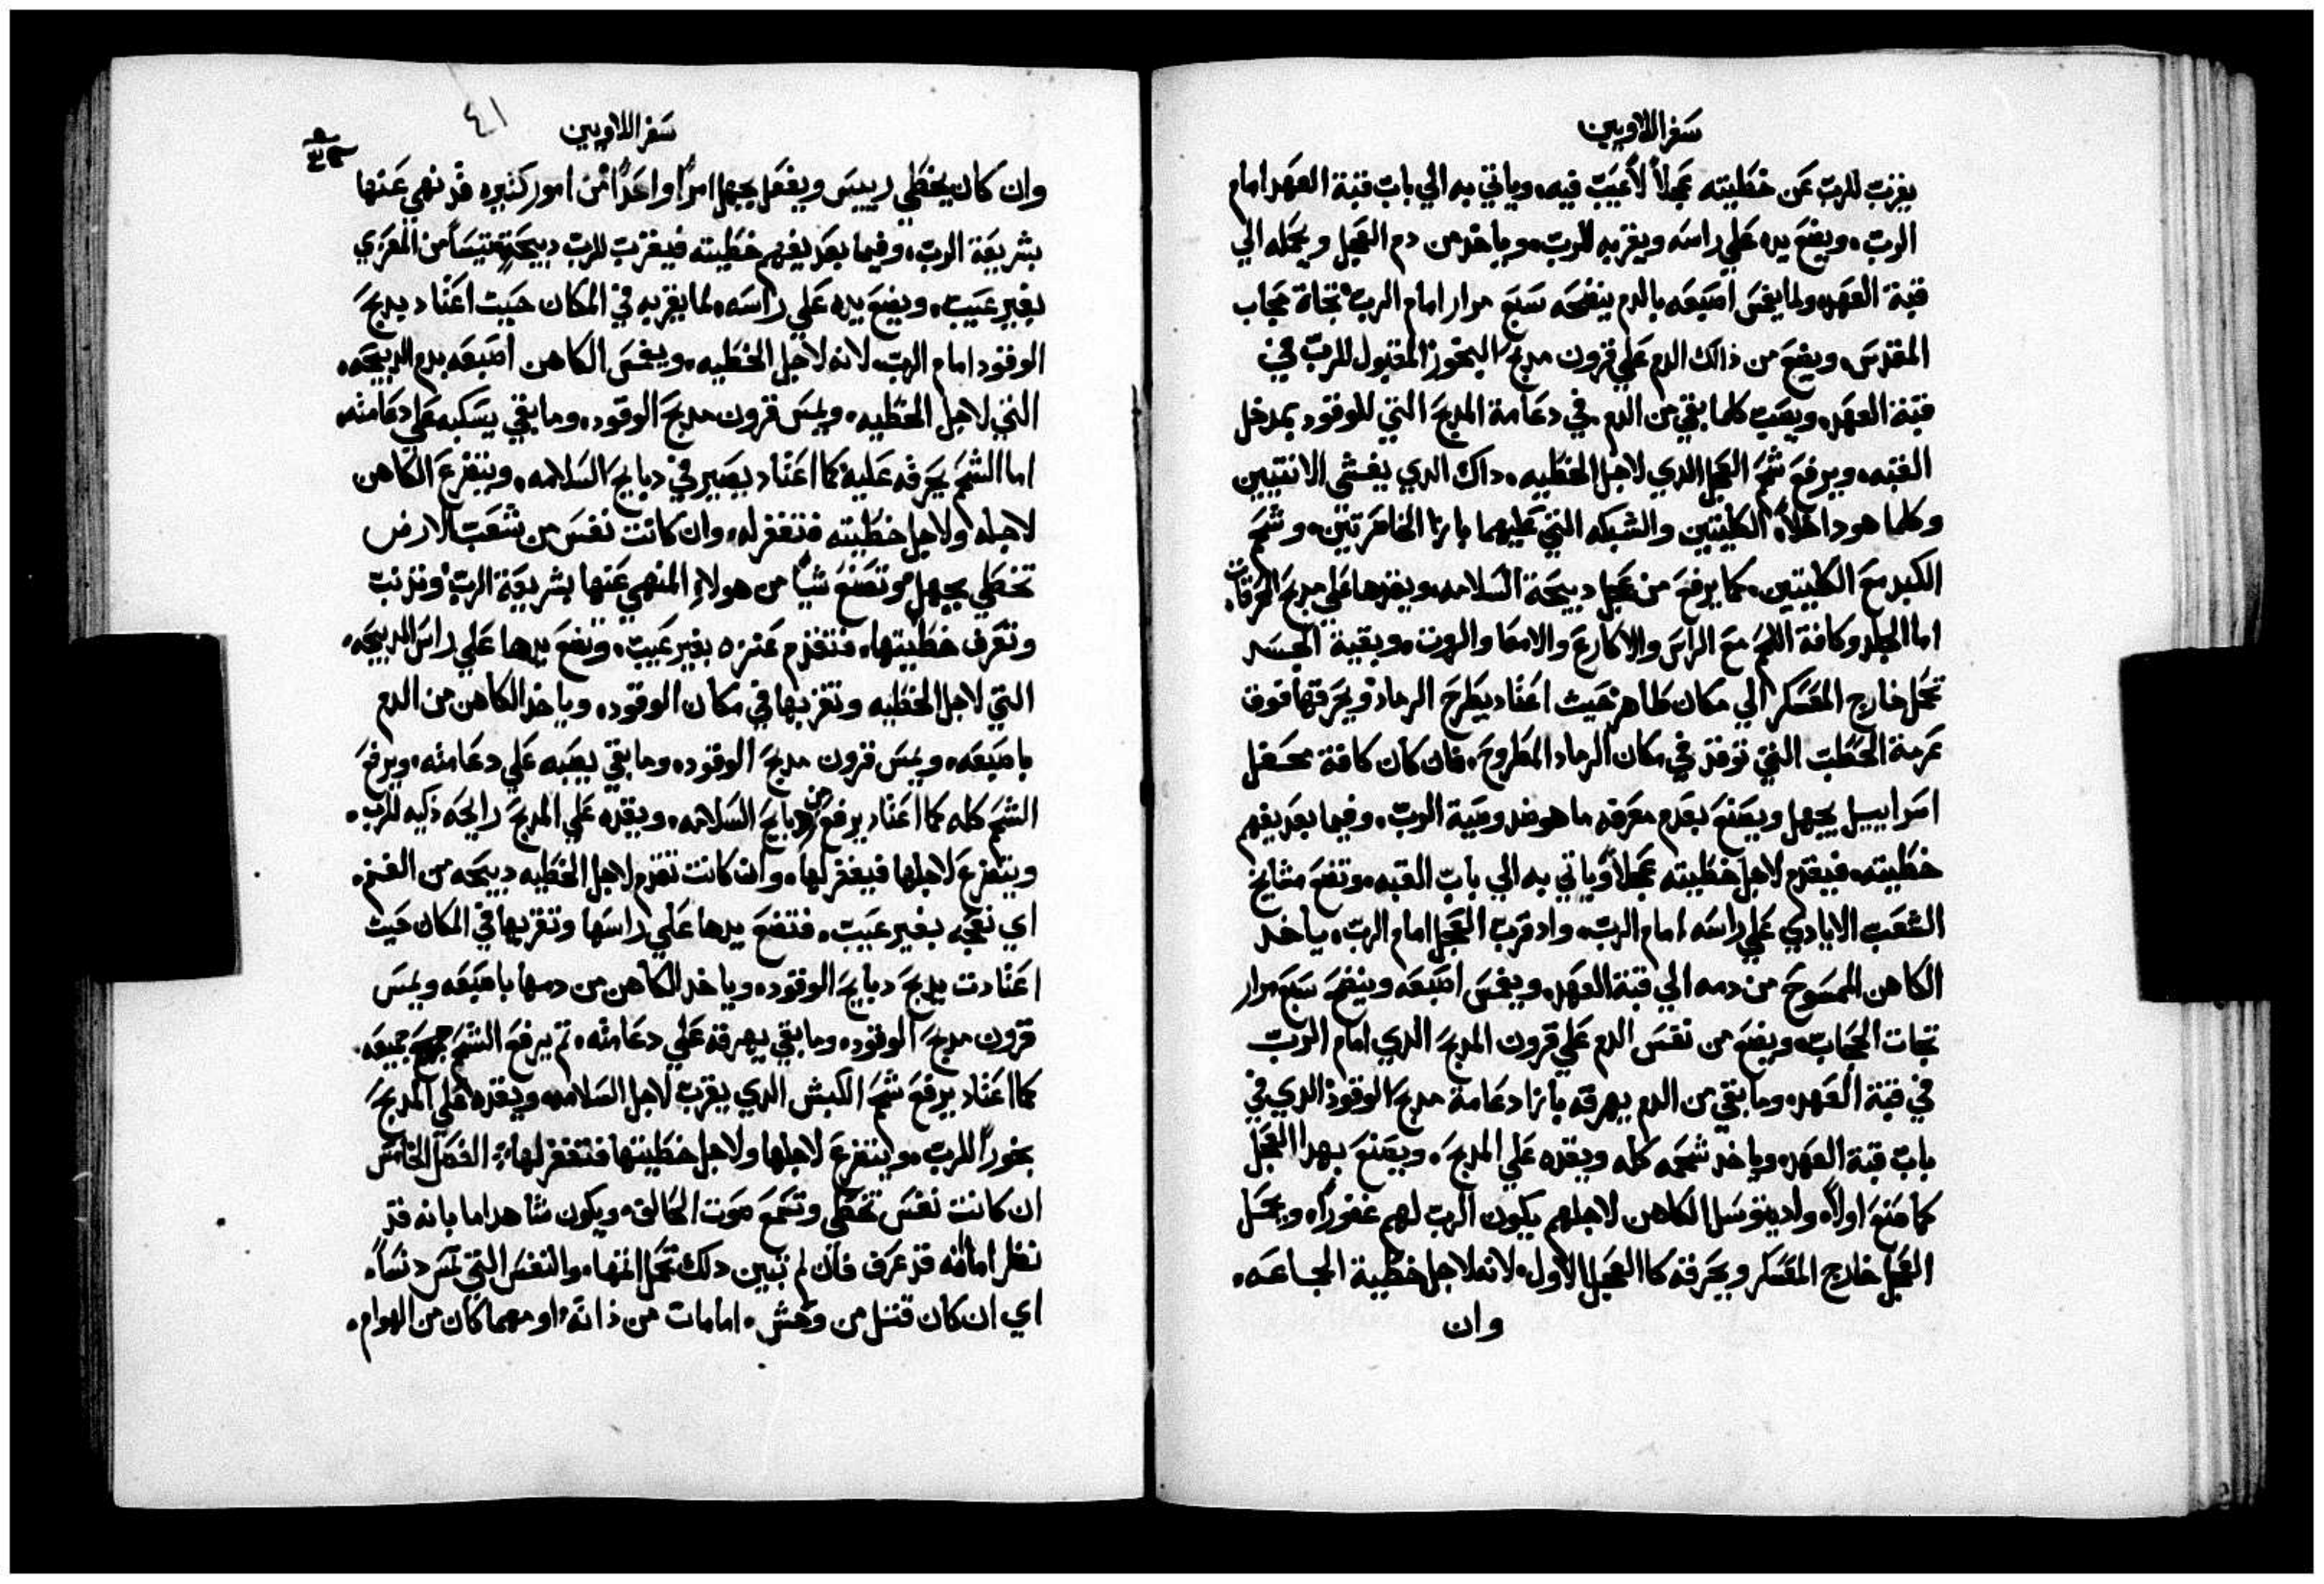 سفر اللاويين
يقرب للرب عن خطيته عجلاً لا عيب فيه، وياتي به الي باب قبة العهد امام
الرب، ويضع يده علي راسه ويقربه للرب، وياخد من دم العجل ويحمله الي
قبة العهد، ولما يغمس اصبعه بالدم ينضحه سبع مرار امام الرب تجاة حجاب
المقدس، ويضع من ذالك الدم علي قرون مدبح البخور المقبول للرب في
قبة العهد، ويصب كلما بقي من الدم في دعامة المدبح التي للوقود بمدخل
القبه، ويرفع شحم العجل الدي لاجل الخطيه، داك الدي يغشي الانتيين
وكلما هو داخلاً، الكليتين والشبكه التي عليهما بازا الخاصرتين، وشحم
الكبد مع الكليتين، كما يرفع من عجل دبيحة السلامه، ويقدها علي مدبح المحرقات
اما الجلد وكافة اللحم مع الراس والاكارع والامعا والروت، وبقية الجسد
تحمل خارج المعسكر الي مكان طاهر حيث اعتاد يطرح الرماد ويحرقها فوق
عرمة الحطب التي توقد في مكان الرماد المطروح، فان كان كافة محفل
اسراييل يجهل ويصنع بعدم معرفه ما هو ضد وصية الرب، وفيما بعد يفهم
خطيته، فيقدم لاجل خطيته عجلاً وياتي به الي باب القبه، وتضع مشايخ
الشعب الايادي علي راسه امام الرب، واد قرب العجل امام الرب، ياخد
الكاهن الممسوح من دمه الي قبة العهد، ويغمس اصبعه وينضح سبع مرار
تجات الحجاب، ويضع من نفس الدم علي قرون المدبح الدي امام الرب
في قبة العهد، وما بقي من الدم يهرقه بازا دعامة مدبح الوقود الدي في
باب قبة العهد، وياخد شحمه كله ويقده علي المدبح، ويصنع بهدا العجل
كما صنع اولاً، واد يتوسل الكاهن لاجلهم يكون الرب لهم غفوراً، ويحمل
العجل خارج المعسكر ويحرقه كالعجل الاول، لانه لاجل خطية الجماعه،
وان
سفر اللاويين
٤١
وان كان يخطي رييس ويفعل بجهل امراً واحداً من امور كثيره قد نهي عنها
بشريعة الرب، وفيما بعد يفهم خطيته فيقرب للرب دبيحة تيساً من المعزي
بغير عيب، ويضع يده علي راسه، لما يقربه في المكان حيث اعتاد يدبح
الوقود امام الرب، لانه لاجل الخطيه، ويغمس الكاهن اصبعه بدم الدبيحه،
التي لاجل الخطيه، ويمس قرون مدبح الوقود، وما بقي يسكبه علي دعامته،
اما الشحم يحرقه عليه كما اعتاد يصير في دبايح السلامه، ويتضرع الكاهن
لاجله ولاجل خطيته فتغفر له، وان كانت نفس من شعب الارض
تخطي بجهل وتصنع شياً من هولاء المنهي عنها بشريعة الرب وتدنب
وتعرف خطيتها، فتقدم عنزه بغير عيب، وتضع يدها علي راس الدبيحه،
التي لاجل الخطيه وتقربها في مكان الوقود، وياخد الكاهن من الدم
باصبعه، ويمس قرون مدبح الوقود، وما بقي يصبه علي دعامته، ويرفع
الشحم كله كما اعتاد يرفع من دبايح السلامه، ويقده علي المدبح رايحه دكيه للرب،
ويتضرع لاجلها فيغفر لها، وان كانت تقدم لاجل الخطيه دبيحه من الغنم،
اي نعجه بغير عيب، فتضع يدها علي راسها وتقربها في المكان حيث
اعتادت يدبح دبايح الوقود، وياخد الكاهن من دمها باصبعه ويمس
قرون مدبح الوقود، وما بقي يهرقه علي دعامته، تم يرفع الشحم جميعه
كما اعتاد يرفع شحم الكبش الدي يقرب لاجل السلامه ويقده علي المدبح
بخوراً للرب، ويتضرع لاجلها ولاجل خطيتها فتغفر لها، الفصل الخامس
ان كانت نفس تخطي وتسمع صوت الحالف، ويكون شاهد اما بانه قد
نظر اما انه قد عرف فان لم تبين دلك تحمل اتمها، والنفس التي تمس دنساً،
اي ان كان قتل من وحش، اما مات من ذاته، او مهما كان من الهوام،